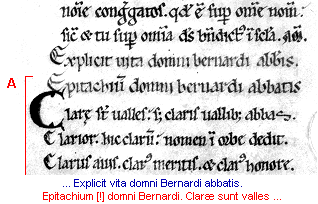 nōīe congꝫgatos. qd' ē sup omīe nom̄:
sic & tu sup omīa d̄s bn̄dict' ī scl̄a. am̄.
Explicit vita domni bernardi abbis.
A
Epitachiū domni bernardi abbatis
Clare st̄ valles. s; claris vallib; abbas.
Clarior. hic clarū: nomen ī orbe dedit.
Clarus auis. clar' meritis. & clar' honore.
... Explicit vita domni Bernardi abbatis.
Epitachium [!] domni Bernardi. Claræ sunt valles ...